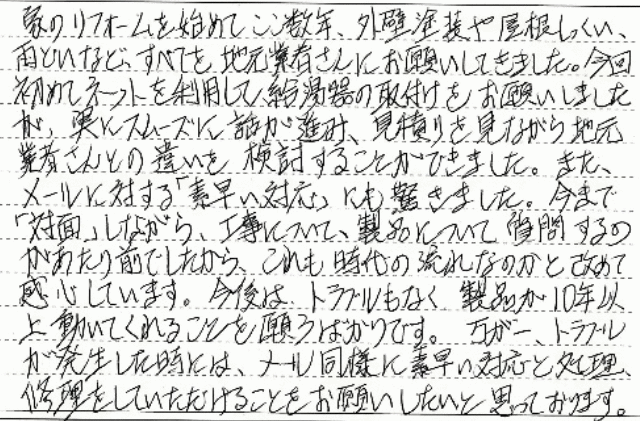 家のリフォームを始めてここ数年、外壁塗装や屋根しっくい、
雨といなど、すべてを地元業者さんにお願いしてきました。今回
初めてネットを利用して給湯器の取付けをお願いしました
が、実にスムーズに話が進み、見積りを見ながら地元
業者さんとの違いを検討することができました。また、
メールに対する「素早い対応」にも驚きました。今まで
「対面」しながら、工事について、製品について質問するの
があたり前でしたから、これも時代の流れなのかと改めて
感心しています。今後は、トラブルもなく製品が10年以
上動いてくれることを願うばかりです。万が一、トラブル
が発生した時には、メール同様に素早い対応と処理、
修理をしていただけることをお願いしたいと思っております。